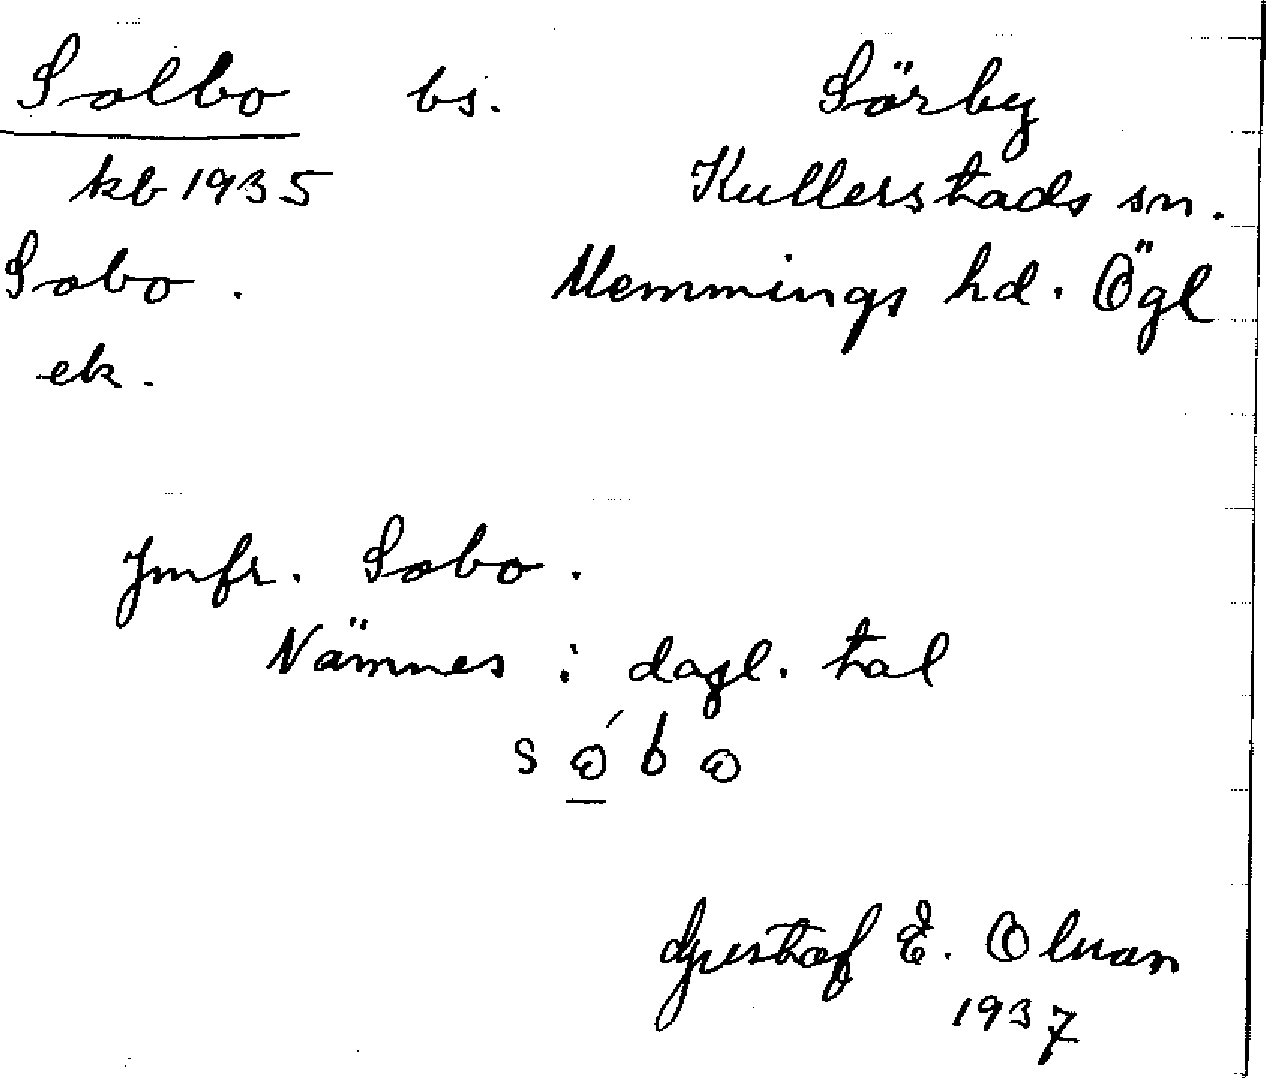 Solbo bs. Sörby
kb 1935 Kullerstads sn.
Sobo. Memmings hd. Ögl
ek.
Jmfr. Sobo.
Nämnes i dagl. tal
sóbo
Gustaf E. Olsson
1937